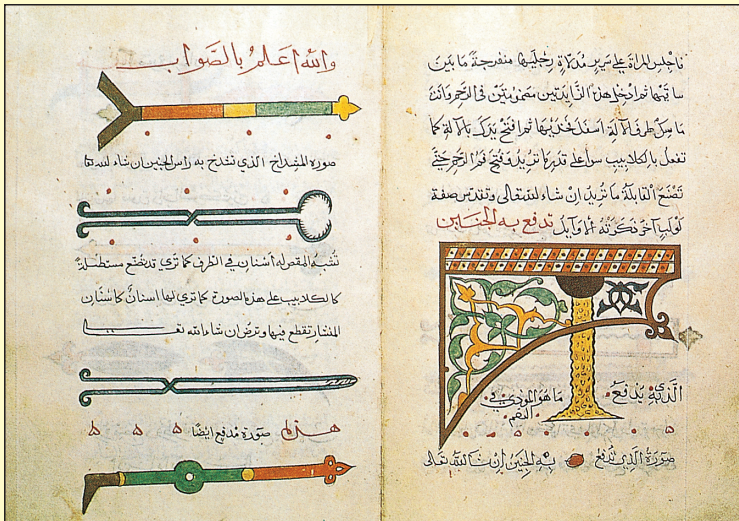 فاجلس المراة على سرير مدلاة رجليها منفرجة ما بين
ساقيها ثم ادخل هذه الزايدتين مضمومتين في الرحم وانت
ماسك طرف الالة اسفل فخذيها ثم افتح يدك بالالة كما
تفعل بالكلاليب سوا على قدر ما تريد وفتح فم الرحم حتى
تصنع القابلة ما تريد ان شاء الله تعالى وتقدس صفة
لولب آخر ذكرته الاوايل تدفع به الجنين
الذي يدفع ما هو المودي في
صورة الذي تدفع به الجنين ان شا الله تعالى
والله اعلم بالصواب
صورة المشداخ الذي تشدخ به راس الجنين ان شاء الله
تشبه المقص له اسنان في الطرف كما تري قد تصنع مستطيلة
كالكلاليب على هذه الصورة كما تري لها اسنان كاسنان
المنشار تقطع فيها وترض ان شاء الله
صورة مدفع ايضا ه ه ه